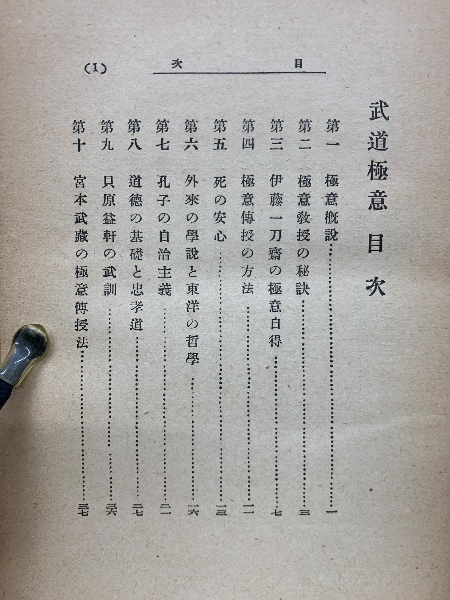 目次 (1)
武道極意 目次
第一 極意概説……一
第二 極意教授の秘訣……三
第三 伊藤一刀齋の極意自得……七
第四 極意傳授の方法……一一
第五 死の安心……一三
第六 外來の學說と東洋の哲學……一六
第七 孔子の自治主義……二一
第八 道德の基礎と忠孝道……二七
第九 貝原益軒の武訓
第十 宮本武藏の極意傳授法